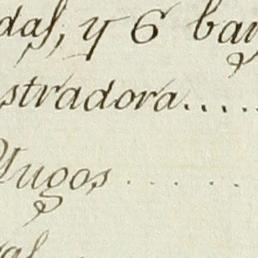 das, y 6 bar
stradora.....
Yugos . . . . .